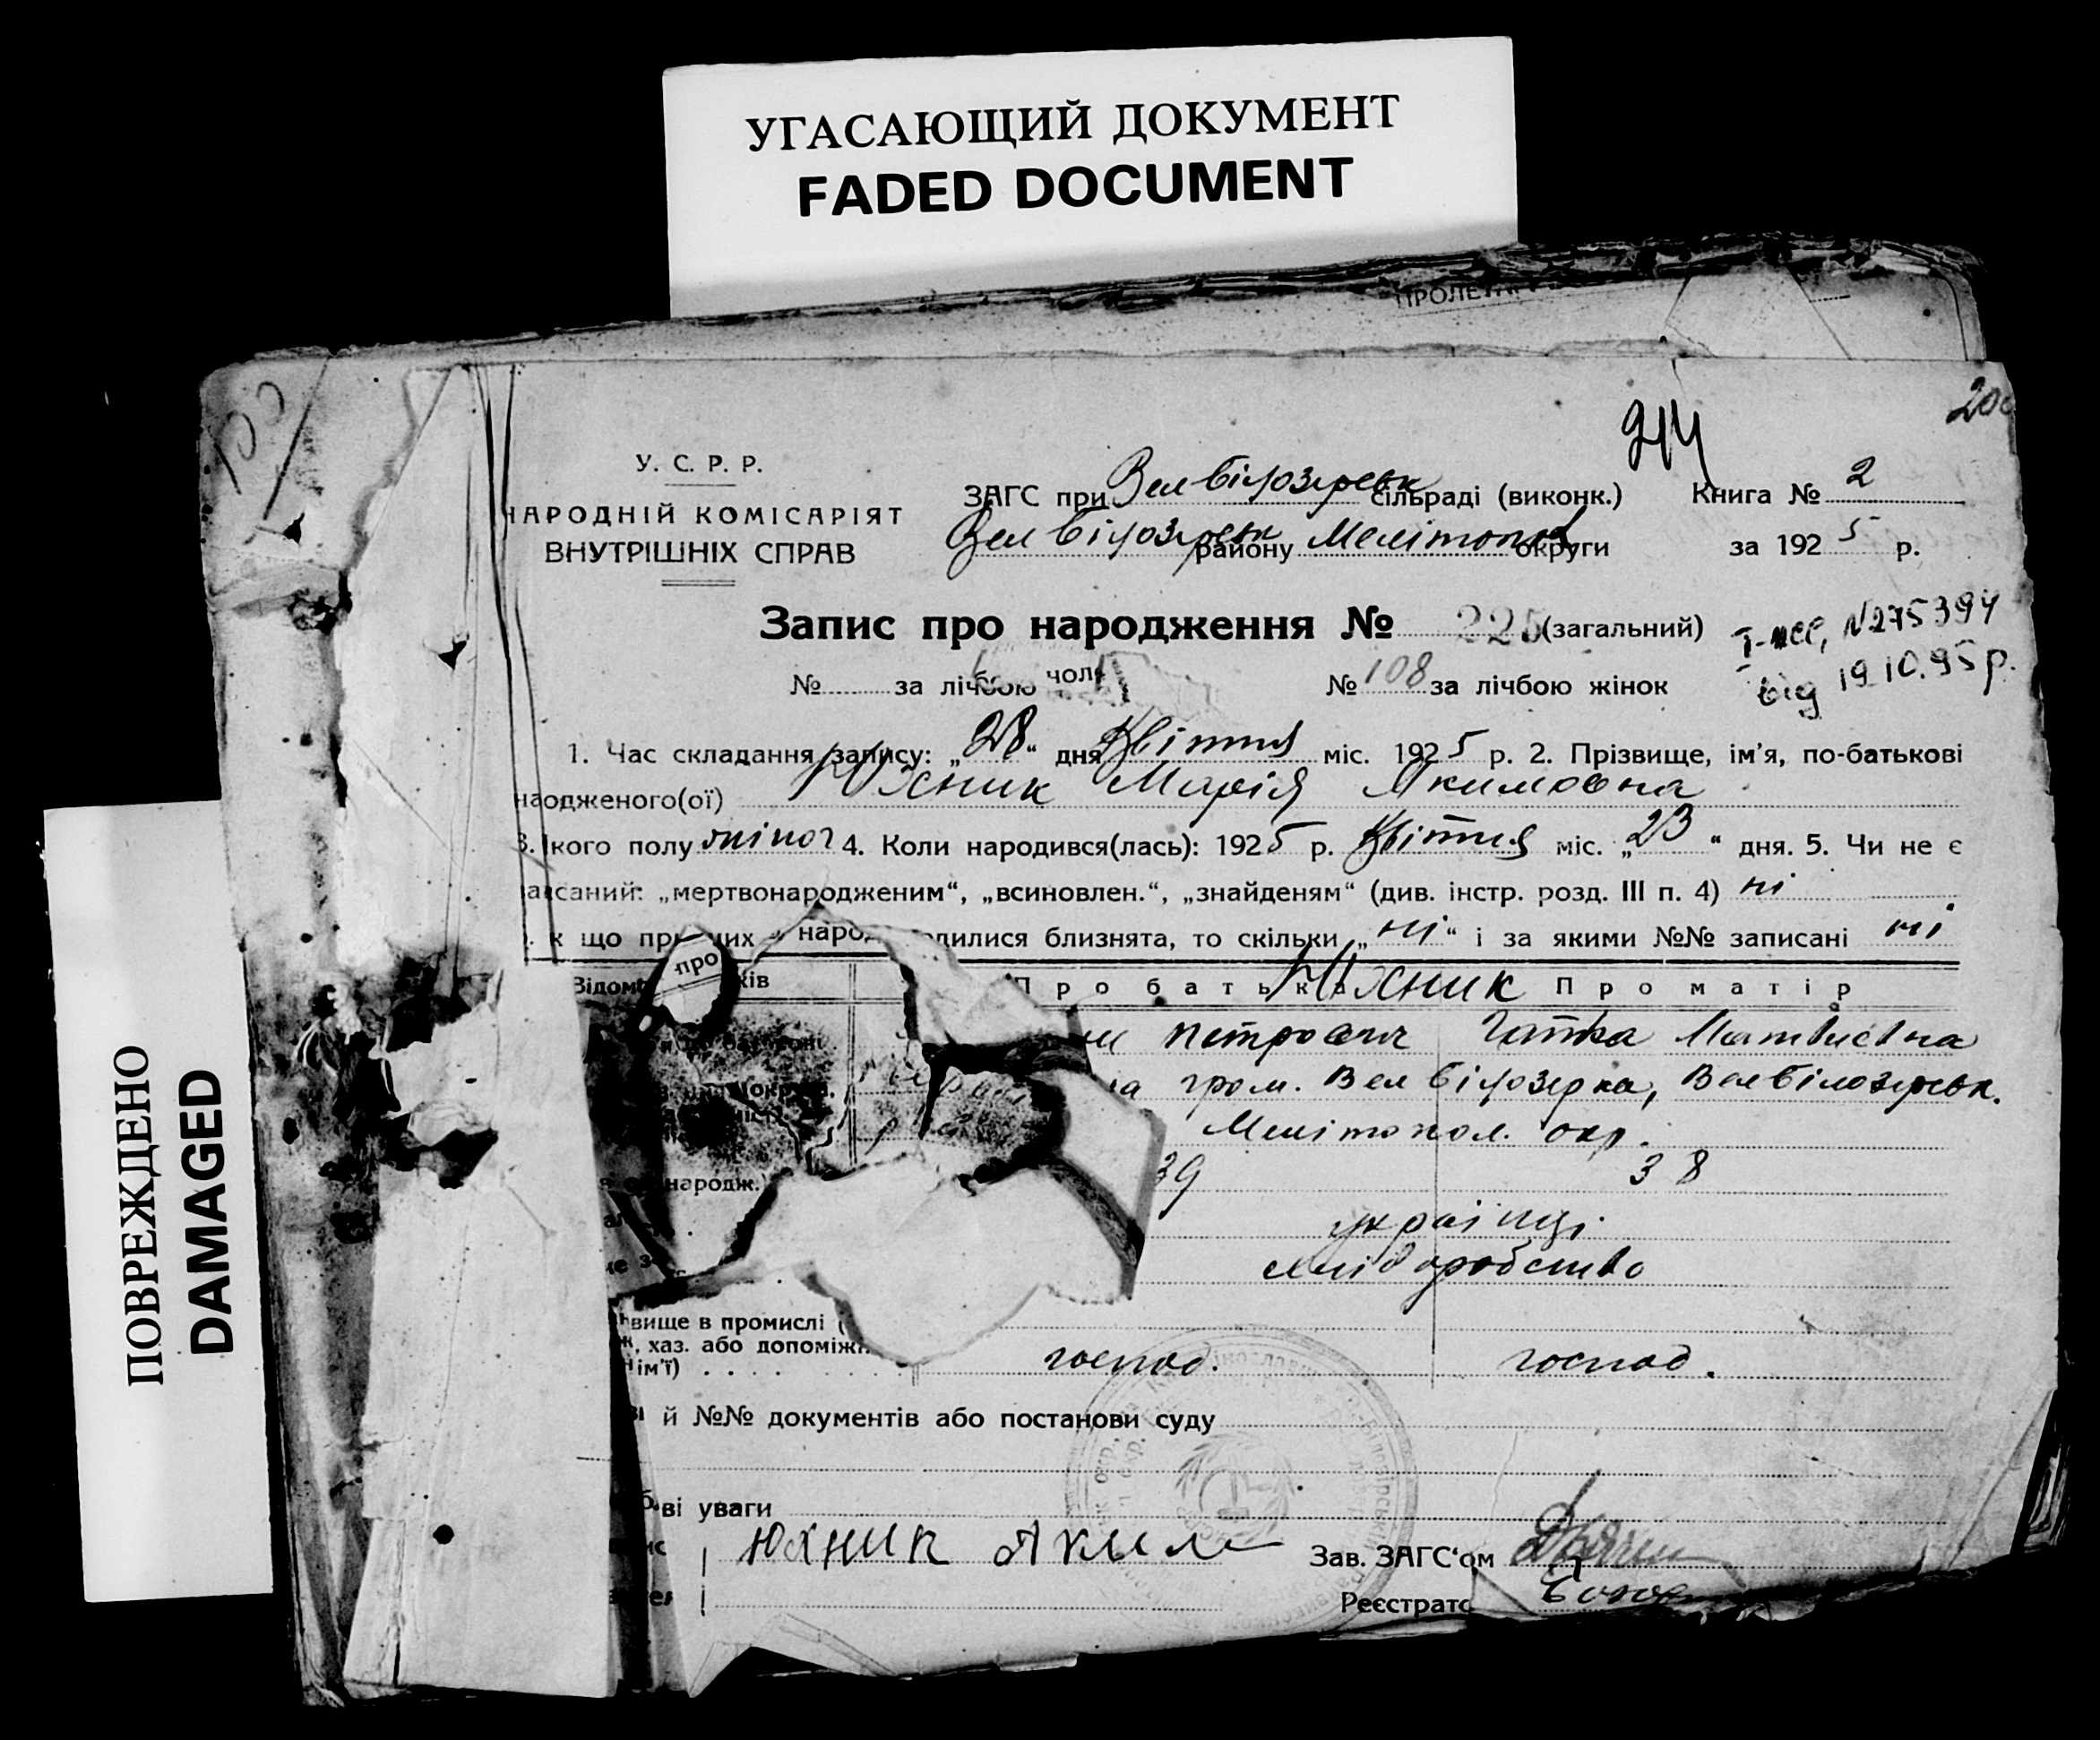 УГАСАЮЩИЙ ДОКУМЕНТ
FADED DOCUMENT
ПОВРЕЖДЕНО
DAMAGED
ПРОЛЕТАР
200
У. С. Р. Р.
НАРОДНІЙ КОМІСАРІЯТ
ВНУТРІШНІХ СПРАВ
ЗАГС при Вел Білозерськ сільраді (виконк.) Книга № 2
Вел Білозерськ району Мелітопол округи за 1925 р.
Запис про народження № 225 (загальний)
Т-НСС, №275394
від 19.10.95р.
№ за лічбою чол № 108 за лічбою жінок
1. Час складання запису: „28“ дня Квітня міс. 1925 р. 2. Прізвище, ім’я, по-батькові
народженого(ої) Юхник Марія Якимовна
3. Якого полу жіноч 4. Коли народився(лась): 1925 р. Квітня міс. „23“ дня. 5. Чи не є
записаний: „мертвонародженим“, „всиновлен.“, „знайденям“ (див. інстр. розд. III п. 4) ні
к що при них народ дилися близнята, то скільки „ні“ і за якими №№ записані ні
про
Відом ків Про батька Юхник Про матір
Петрович Матвиєвна
гром. Вел Білозерка, Велбілозерськ.
Мелітопол. окр.
народж.) 39 38
українці
хліборобство
вище в промислі (
хаз. або допоміжн
ім’ї) господ. господ.
й №№ документів або постанови суду
ві уваги
Юхник Аким Зав. ЗАГС‘ом
Реєстрато